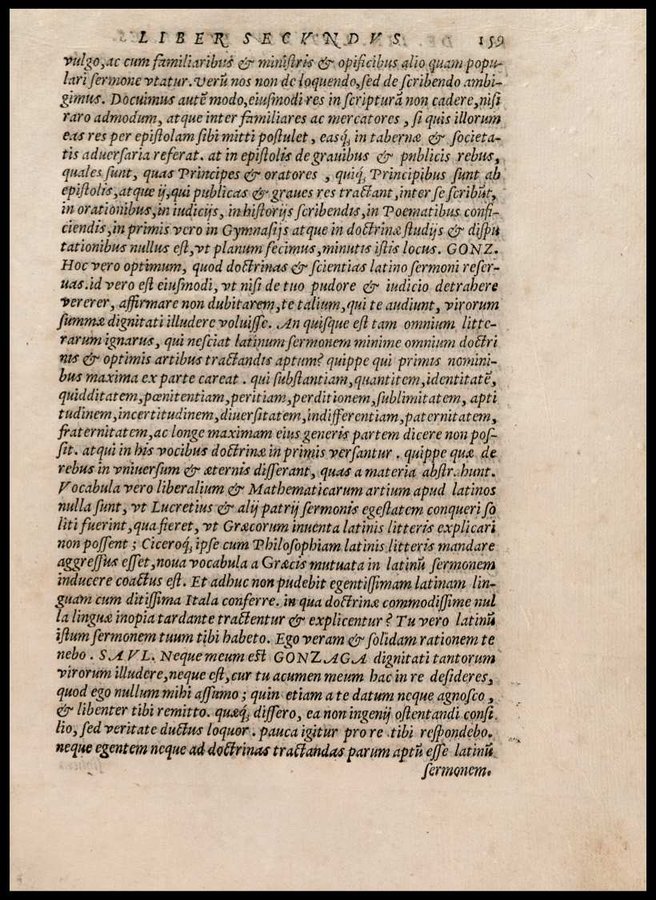 LIBER SECVNDVS. 159
vulgo, ac cum familiaribus & ministris & opificibus alio quam popu-
lari sermone vtatur. Verũ nos non de loquendo, sed de scribendo ambi-
gimus. Docuimus autẽ modo, eiusmodi res in scripturã non cadere, nisi
raro admodum, atque inter familiares ac mercatores, si quis illorum
eas res per epistolam sibi mitti postulet, easq́; in tabernæ & societa-
tis aduersaria referat. at in epistolis de grauibus & publicis rebus,
quales sunt, quas Principes & oratores, quiq́; Principibus sunt ab
epistolis, atque ij, qui publicas & graues res tractant, inter se scribũt,
in orationibus, in iudicijs, in historijs scribendis, in Poematibus confi-
ciendis, in primis vero in Gymnasijs atque in doctrinæ studijs & dispu
tationibus nullus est, vt planum fecimus, minutis istis locus. GONZ.
Hoc vero optimum, quod doctrinas & scientias latino sermoni reser-
uas. id vero est eiusmodi, vt nisi de tuo pudore & iudicio detrahere
vererer, affirmare non dubitarem, te talium, qui te audiunt, virorum
summæ dignitati illudere voluisse. An quisque est tam omnium litte-
rarum ignarus, qui nesciat latinum sermonem minime omnium doctri
nis & optimis artibus tractandis aptum? quippe qui primis nomini-
bus maxima ex parte careat. qui substantiam, quantitem, identitatẽ,
quidditatem, pœnitentiam, peritiam, perditionem, sublimitatem, apti
tudinem, incertitudinem, diuersitatem, indifferentiam, paternitatem,
fraternitatem, ac longe maximam eius generis partem dicere non pos-
sit. atqui in his vocibus doctrinæ in primis versantur. quippe quæ de
rebus in vniuersum & æternis differant, quas a materia abstrahunt.
Vocabula vero liberalium & Mathematicarum artium apud latinos
nulla sunt, vt Lucretius & alij patrij sermonis egestatem conqueri so
liti fuerint, qua fieret, vt Græcorum inuenta latinis litteris explicari
non possent; Ciceroq́; ipse cum Philosophiam latinis litteris mandare
aggressus esset, noua vocabula a Græcis mutuata in latinũ sermonem
inducere coactus est. Et adhuc non pudebit egentissimam latinam lin-
guam cum ditissima Itala conferre. in qua doctrinæ commodissime nul
la linguæ inopia tardante tractentur & explicentur? Tu vero latinũ
istum sermonem tuum tibi habeto. Ego veram & solidam rationem te
nebo. SAVL. Neque meum est GONZAGA dignitati tantorum
virorum illudere, neque est, cur tu acumen meum hac in re desideres,
quod ego nullum mihi assumo; quin etiam a te datum neque agnosco,
& libenter tibi remitto. quæq́; differo, ea non ingenij ostentandi consi
lio, sed veritate ductus loquor. pauca igitur pro re tibi respondebo.
neque egentem neque ad doctrinas tractandas parum aptũ esse latinũ
sermonem.